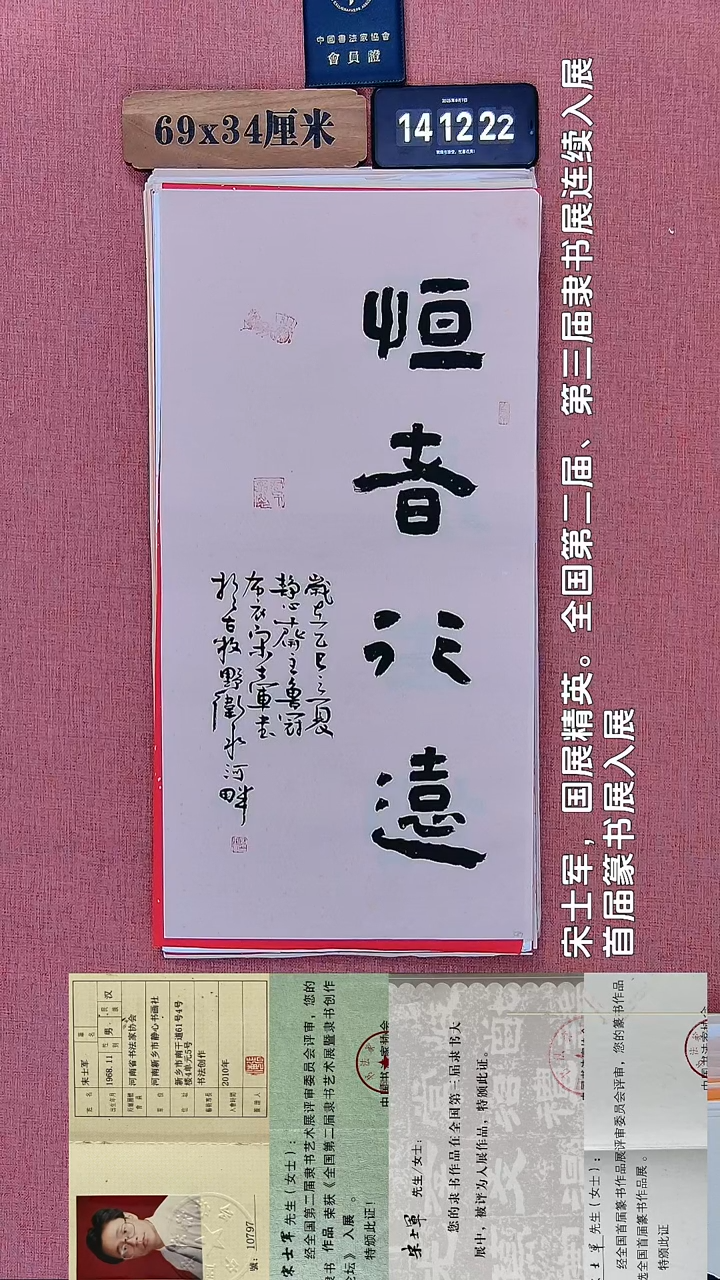 中國書法家協會
會員證
69x34厘米
14 12 22
恒者行遠
歲在乙巳之夏
静心齋主魯冠
布衣宋士軍書
於古牧野衛水河畔
宋士军，国展精英。全国第二届、第三届隶书展连续入展
首届篆书展入展
姓名 宋士军
性别 男 民族 汉
出生年月 1968.11
河南省书法家协会
河南新乡市静心书画社
新乡市南干道61号4号
楼4单元5号
书法创作
入會時間 2010年
號：10797
宋士軍 先生（女士）：
经全国第二届隶书艺术展评审委员会评审，您的
隶书 作品 荣获《全国第二届隶书艺术展暨隶书创作
论坛》 入展 。
特颁此证！
宋士軍 先生/女士：
您的隶书作品在全国第三届隶书大
展中，被评为入展作品，特颁此证。
士军 先生（女士）：
经全国首届篆书作品展评审委员会评审，您的篆书作品
全国首届篆书作品展 。
特颁此证